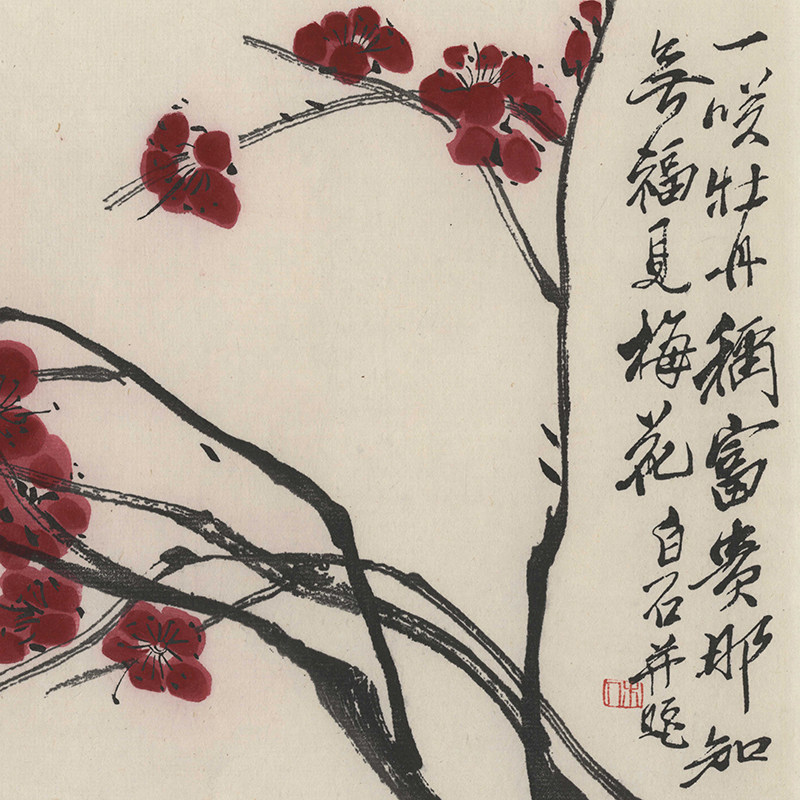 一咲牡丹稱富貴那知
福梅花 白石并題
木人